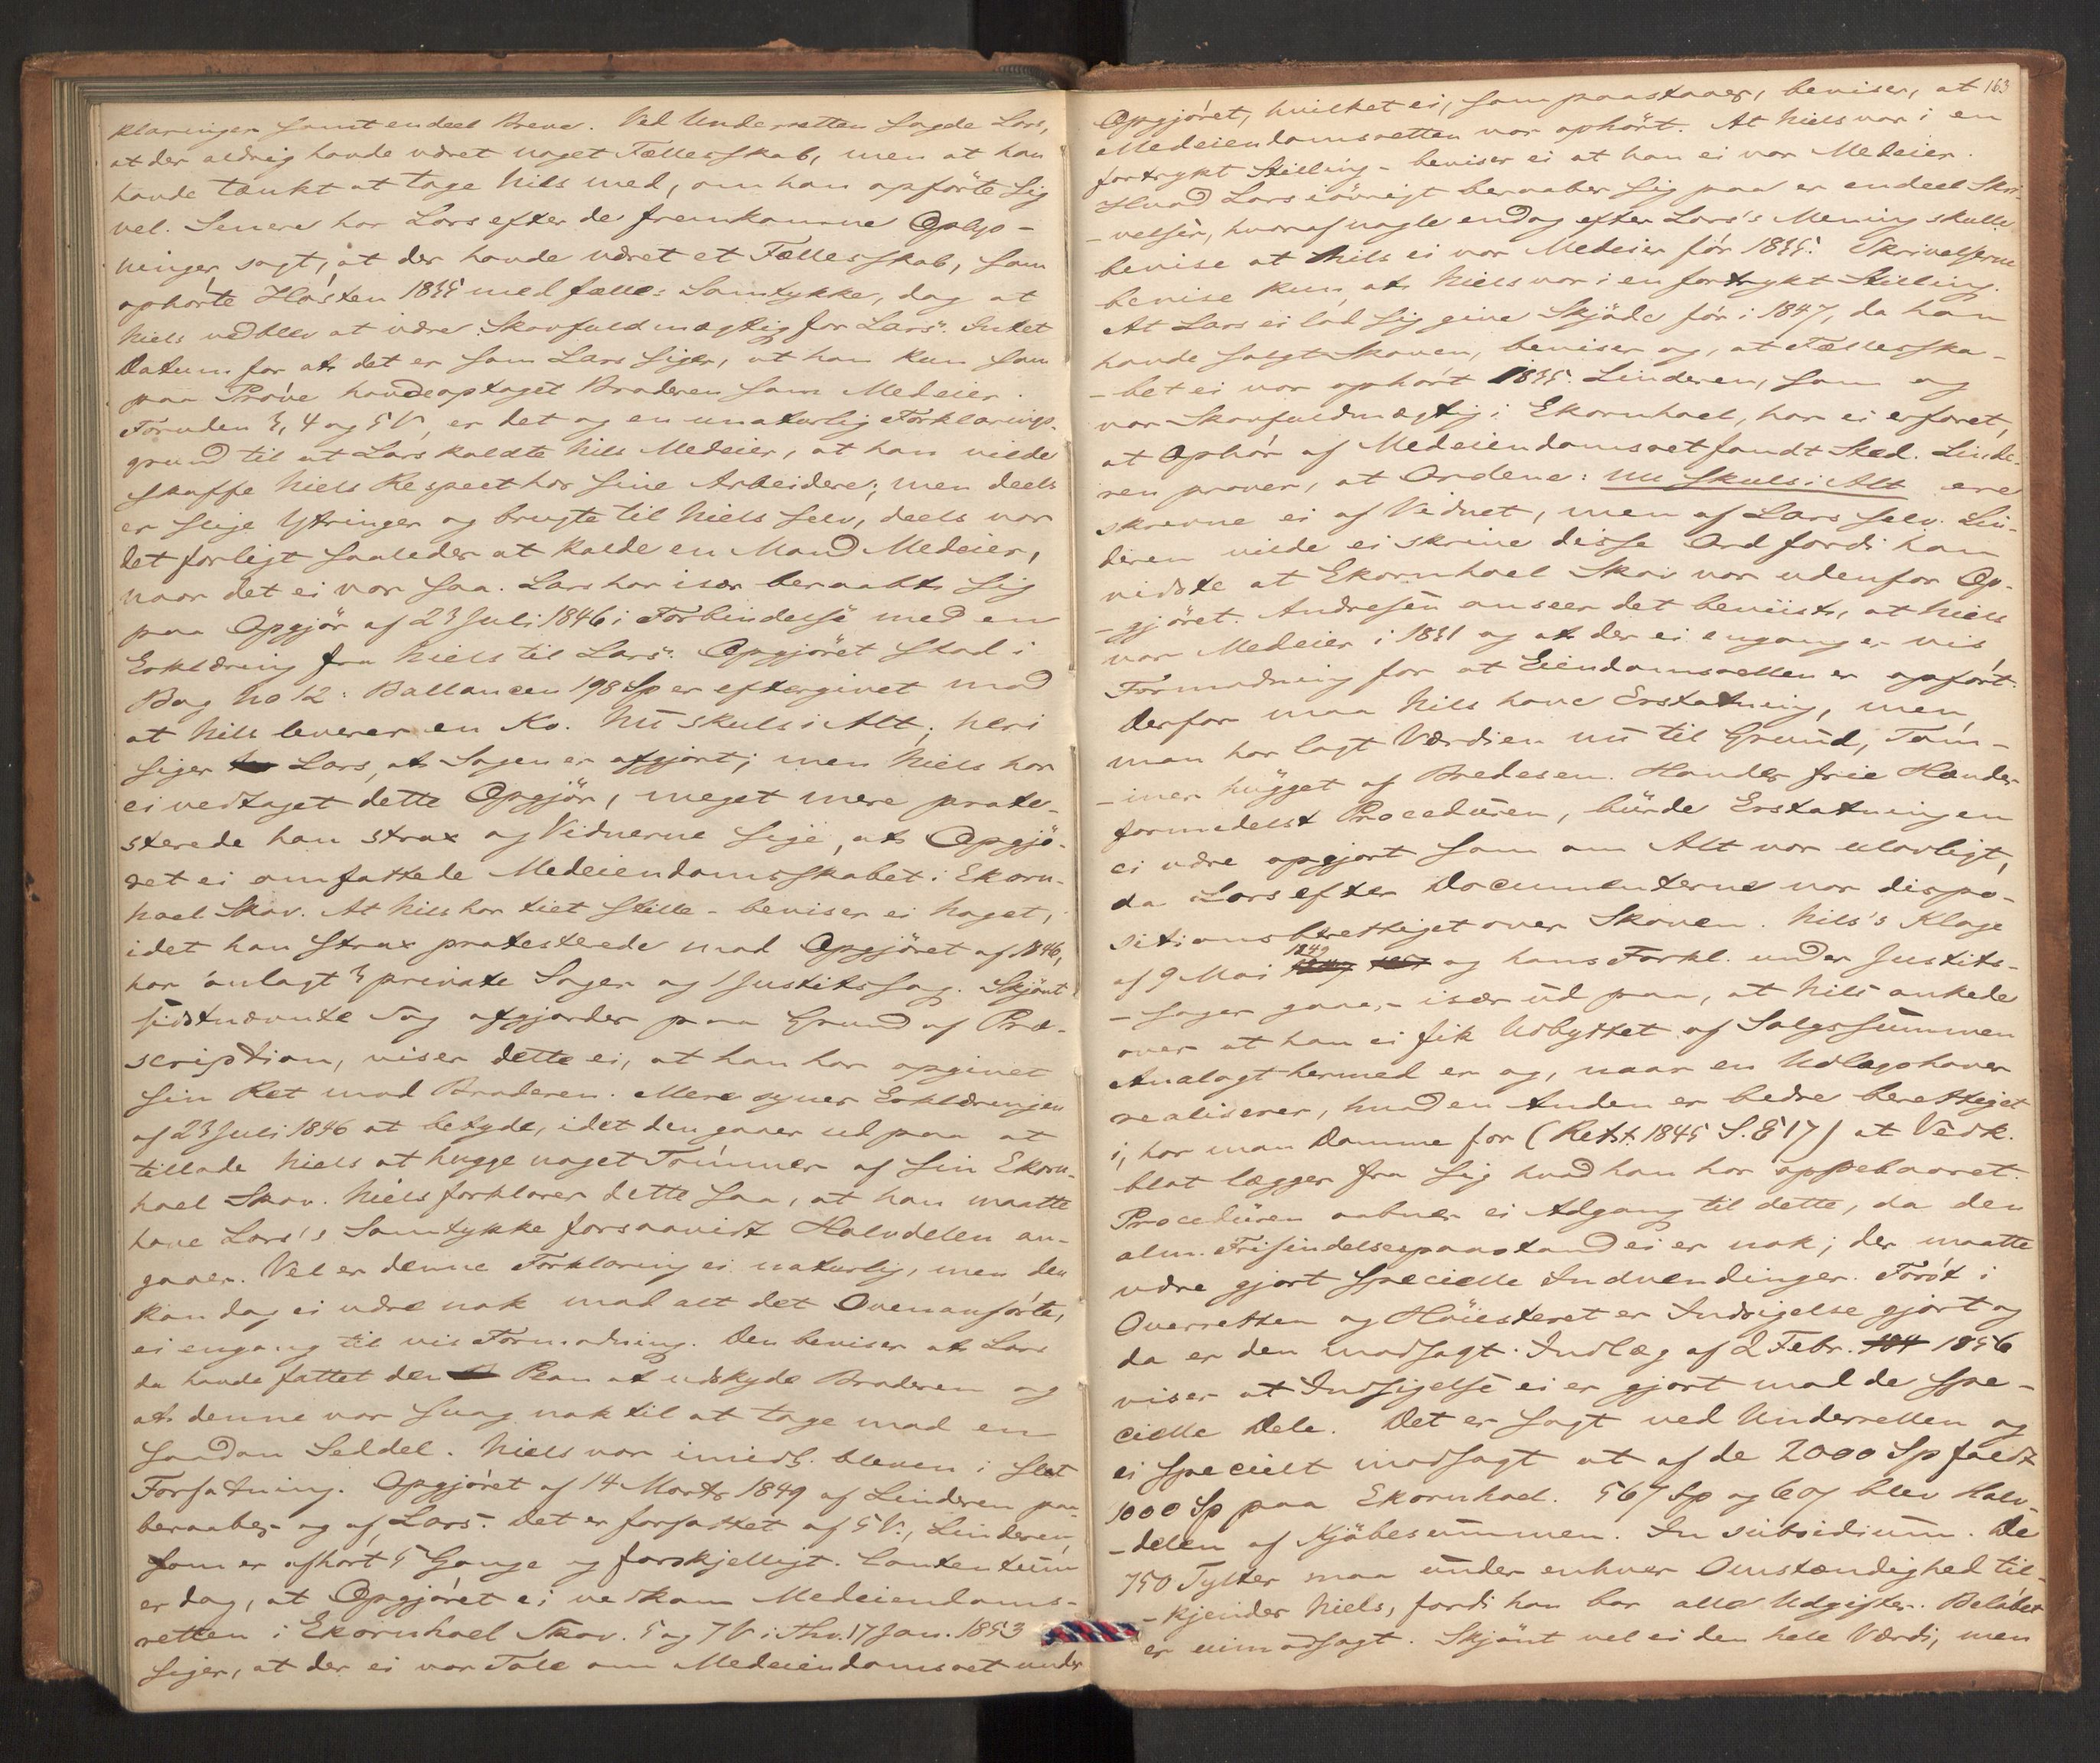 klaringer samt endeel Breve. Ved Underretten sagde Lars,
at der aldrig havde været noget Fællesskab, men at han
havde tænkt at tage Nils med, om han opførte sig
vel. Senere har Lars efter de fremkomne Oplys-
ninger sagt, at der havde været et Fællesskab, som
ophørte Høsten 1835 med fælles Samtykke, dog at
Niels vedblev at være Skovfuldmægtig for Lars. Intet
Datum for at det er som Lars siger, at han kun som
paa Prøve havde optaget Broderen som Medeier.
Foruden 3, 4 og 5 V, er det og en unaturlig Forklarings-
grund til at Lars kaldte Nils Medeier, at han vilde
skaffe Niels Respect hos sine Arbeidere; men deels
er slige Ytringer og brugte til Niels selv, deels var
det farligt saaledes at kalde en Mand Medeier,
naar det ei var saa. Lars har især beraabt sig
paa Opgjør af 23 Juli 1846 i Forbindelse med en
Erklæring fra Niels til Lars. Opgjøret stod i
Bog No 12: Ballancen 198 Sp er eftergivet mod
at Nils leverer en Ko. Nu skuls i Alt; heri
siger Lars, at Sagen er afgjort; men Niels har
ei vedtaget dette Opgjør, meget mere prote-
sterede han strax og Vidnerne sige, at Opgjø-
ret ei omfattede Medeiendomsskabet i Ekorn-
hoel Skov. At Nils har tiet stille - beviser ei Noget,
idet han strax protesterede mod Opgjøret af 1846,
har anlagt 3 private Sager og 1 Justitssag. Skjønt
sidstnævnte Sag afgjordes paa Grund af Præ-
scription, viser dette ei, at han har opgivet
sin Ret mod Broderen. Mere synes Erklæringen
af 23 Juli 1846 at betyde, idet den gaaer ud paa at
tillade Niels at hugge noget Tømmer af sin Ekorn-
hoel Skov. Niels forklarer dette saa, at han maatte
have Lars's Samtykke forsaavidt Halvdelen an-
gaaer. Vel er denne Forklaring ei naturlig, men den
kan dog ei være nok mod alt det Ovenanførte,
ei engang til vis Formodning. Den beviser at Lars
da havde fattet den Plan at udskyde Broderen og
at denne var svag nok til at tage mod en
saadan Seddel. Niels var imidl. bleven i slet
Forfatning. Opgjøret af 14 Marts 1849 af Linderen paa-
beraabes og af Lars. Det er forfattet af 5 V., Linderen,
som er afhørt 5 Gange og forskjelligt. Contentum
er dog, at Opgjøret ei vedkom Medeiendoms-
retten i Ekornhoel Skov. 5 og 7 V i Thv. 17 Jan. 1853
siger, at der ei var Tale om Medeiendomsret under
163
Opgjøret, hvilket ei, som paastaaes, beviser, at
Medeiendomsretten var ophørt. At Niels var i en
fortrykt Stilling - beviser ei at han ei var Medeier.
Hvad Lars iøvrigt beraaber sig paa er endeel Skri-
-velser, hvoraf nogle endog efter Lars's Mening skulle
bevise at Nils ei var Medeier før 1835. Skrivelserne
bevise kun, at Niels var i en fortrykt Stilling.
At Lars ei lod sig give Skjøde før i 1847, da han
havde solgt Skoven, beviser og, at Fællesska-
-bet ei var ophørt 1835. Linderen, som og
var Skovfuldmægtig i Ekornhoel, har ei erfaret,
at Ophør af Medeiendomsret fandt Sted. Linde-
ren prover, at Ordene: nu skuls i Alt ere
skrevne ei af Vidnet, men af Lars selv. Lin-
deren vilde ei skrive disse Ord fordi han
vidste at Ekornhoel Skov var udenfor Op-
-gjøret. Andresen anseer det beviist, at Niels
var Medeier i 1831 og at der ei engang er vis
Formodning for at Eiendomsretten er ophørt.
Derfor maa Nils have Erstatning, men
man har lagt Værdien nu til Grund, Tøm-
-mer hugget af Bredesen. Havdes frie Hænder
formedelst Proceduren, burde Erstatningen
ei være opgjort som om Alt var ulovligt,
da Lars efter Documenterne var dispo-
sitionsberettiget over Skoven. Nils's Klage
af 9 Mai 1849 og hans Forkl. under Justits-
-sagen gaae, især ud paa, at Nils ankede
over at han ei fik Udbyttet af Salgssummen
Analogt hermed er og, naar en Udlægshaver
realiserer, hvad en Anden er bedre berettiget
i, har man Domme for (Retst. 1845 S. 517) at Vedk.
blot lægger fra sig hvad han har oppebaaret.
Proceduren aabner ei Adgang til dette, da den
alm. Frifindelsespaastand ei er nok; der maatte
være gjort specielle Indvendinger. Først i
Overretten og Høiesteret er Indsigelse gjort og
da er den modsagt. Indlæg af 2 Febr. 1856
viser at Indsigelse ei er gjort mod de spe-
cielle Dele. Det er sagt ved Underretten og
ei specielt modsagt at af de 2000 Sp faldt
1000 Sp paa Ekornhoel. 567 Sp og 60 blev Halv-
-delen af Kjøbesummen. In subsidium. De
750 Tylter maa under enhver Omstændighed til-
-kjendes Niels, fordi han bar alle Udgifter. Beløbet
er uimodsagt. Skjønt vel ei den hele Værdi, men